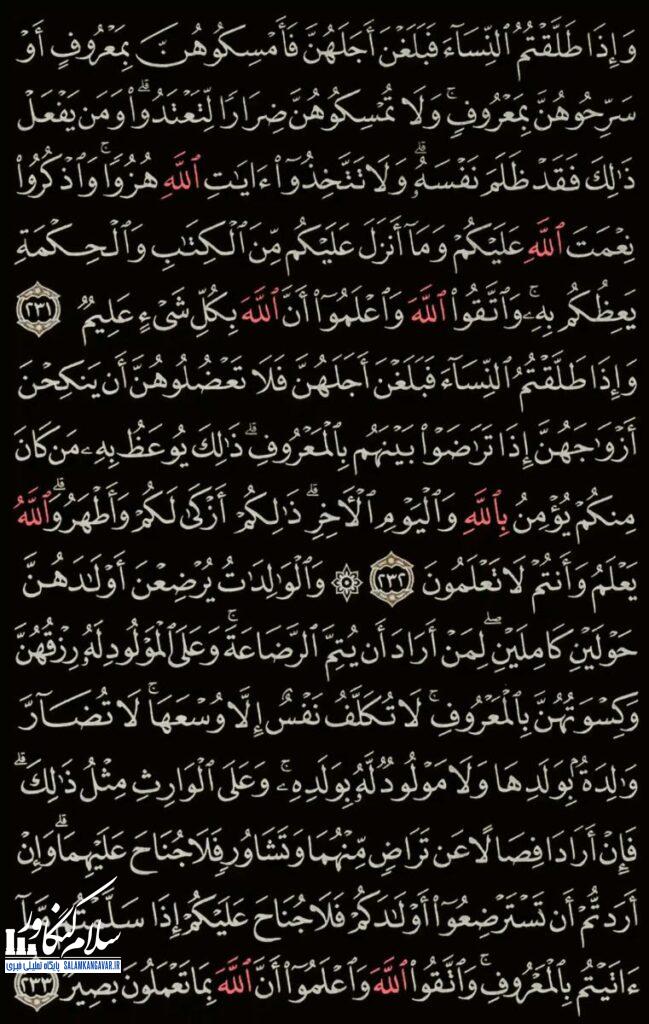 وَإِذَا طَلَّقْتُمُ ٱلنِّسَآءَ فَبَلَغْنَ أَجَلَهُنَّ فَأَمْسِكُوهُنَّ بِمَعْرُوفٍ أَوْ
سَرِّحُوهُنَّ بِمَعْرُوفٍۚ وَلَا تُمْسِكُوهُنَّ ضِرَارًا لِّتَعْتَدُوا۟ۚ وَمَن يَفْعَلْ
ذَٰلِكَ فَقَدْ ظَلَمَ نَفْسَهُۥۚ وَلَا تَتَّخِذُوٓا۟ ءَايَٰتِ ٱللَّهِ هُزُوًاۚ وَٱذْكُرُوا۟
نِعْمَتَ ٱللَّهِ عَلَيْكُمْ وَمَآ أَنزَلَ عَلَيْكُم مِّنَ ٱلْكِتَٰبِ وَٱلْحِكْمَةِ
يَعِظُكُم بِهِۦۚ وَٱتَّقُوا۟ ٱللَّهَ وَٱعْلَمُوٓا۟ أَنَّ ٱللَّهَ بِكُلِّ شَىْءٍ عَلِيمٌ ٢٣١
وَإِذَا طَلَّقْتُمُ ٱلنِّسَآءَ فَبَلَغْنَ أَجَلَهُنَّ فَلَا تَعْضُلُوهُنَّ أَن يَنكِحْنَ
أَزْوَٰجَهُنَّ إِذَا تَرَٰضَوْا۟ بَيْنَهُم بِٱلْمَعْرُوفِۗ ذَٰلِكَ يُوعَظُ بِهِۦ مَن كَانَ
مِنكُمْ يُؤْمِنُ بِٱللَّهِ وَٱلْيَوْمِ ٱلْءَاخِرِۗ ذَٰلِكُمْ أَزْكَىٰ لَكُمْ وَأَطْهَرُۗ وَٱللَّهُ
يَعْلَمُ وَأَنتُمْ لَا تَعْلَمُونَ ٢٣٢ ۞ وَٱلْوَٰلِدَٰتُ يُرْضِعْنَ أَوْلَٰدَهُنَّ
حَوْلَيْنِ كَامِلَيْنِۖ لِمَنْ أَرَادَ أَن يُتِمَّ ٱلرَّضَاعَةَۚ وَعَلَى ٱلْمَوْلُودِ لَهُۥ رِزْقُهُنَّ
وَكِسْوَتُهُنَّ بِٱلْمَعْرُوفِۚ لَا تُكَلَّفُ نَفْسٌ إِلَّا وُسْعَهَاۚ لَا تُضَآرَّ
وَٰلِدَةٌۢ بِوَلَدِهَا وَلَا مَوْلُودٌ لَّهُۥ بِوَلَدِهِۦۚ وَعَلَى ٱلْوَارِثِ مِثْلُ ذَٰلِكَۗ
فَإِنْ أَرَادَا فِصَالًا عَن تَرَاضٍ مِّنْهُمَا وَتَشَاوُرٍ فَلَا جُنَاحَ عَلَيْهِمَاۗ وَإِنْ
أَرَدتُّمْ أَن تَسْتَرْضِعُوٓا۟ أَوْلَٰدَكُمْ فَلَا جُنَاحَ عَلَيْكُمْ إِذَا سَلَّمْتُم مَّآ
ءَاتَيْتُم بِٱلْمَعْرُوفِۗ وَٱتَّقُوا۟ ٱللَّهَ وَٱعْلَمُوٓا۟ أَنَّ ٱللَّهَ بِمَا تَعْمَلُونَ بَصِيرٌ ٢٣٣
سلام کنگاور
پایگاه تحلیلی خبری SALAMKANGAVAR.IR